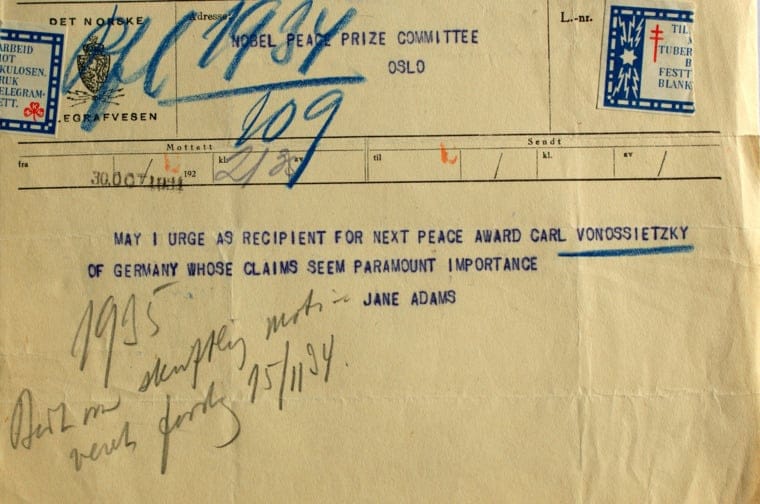 DET NORSKE
Adresse:
L.-nr.
1934
NOBEL PEACE PRIZE COMMITTEE
OSLO
ARBEID
MOT
KULOSEN.
RUK
ELEGRAM-
ETT.
TIL
TUBER
B
FESTT
BLANK
EGRAFVESEN
109
Mottatt
Sendt
fra
kl.
av
til
kl.
av
30.OCT.1934
192
MAY I URGE AS RECIPIENT FOR NEXT PEACE AWARD CARL VONOSSIETZKY
OF GERMANY WHOSE CLAIMS SEEM PARAMOUNT IMPORTANCE
JANE ADAMS
1935
skriftlig
15/11 34.